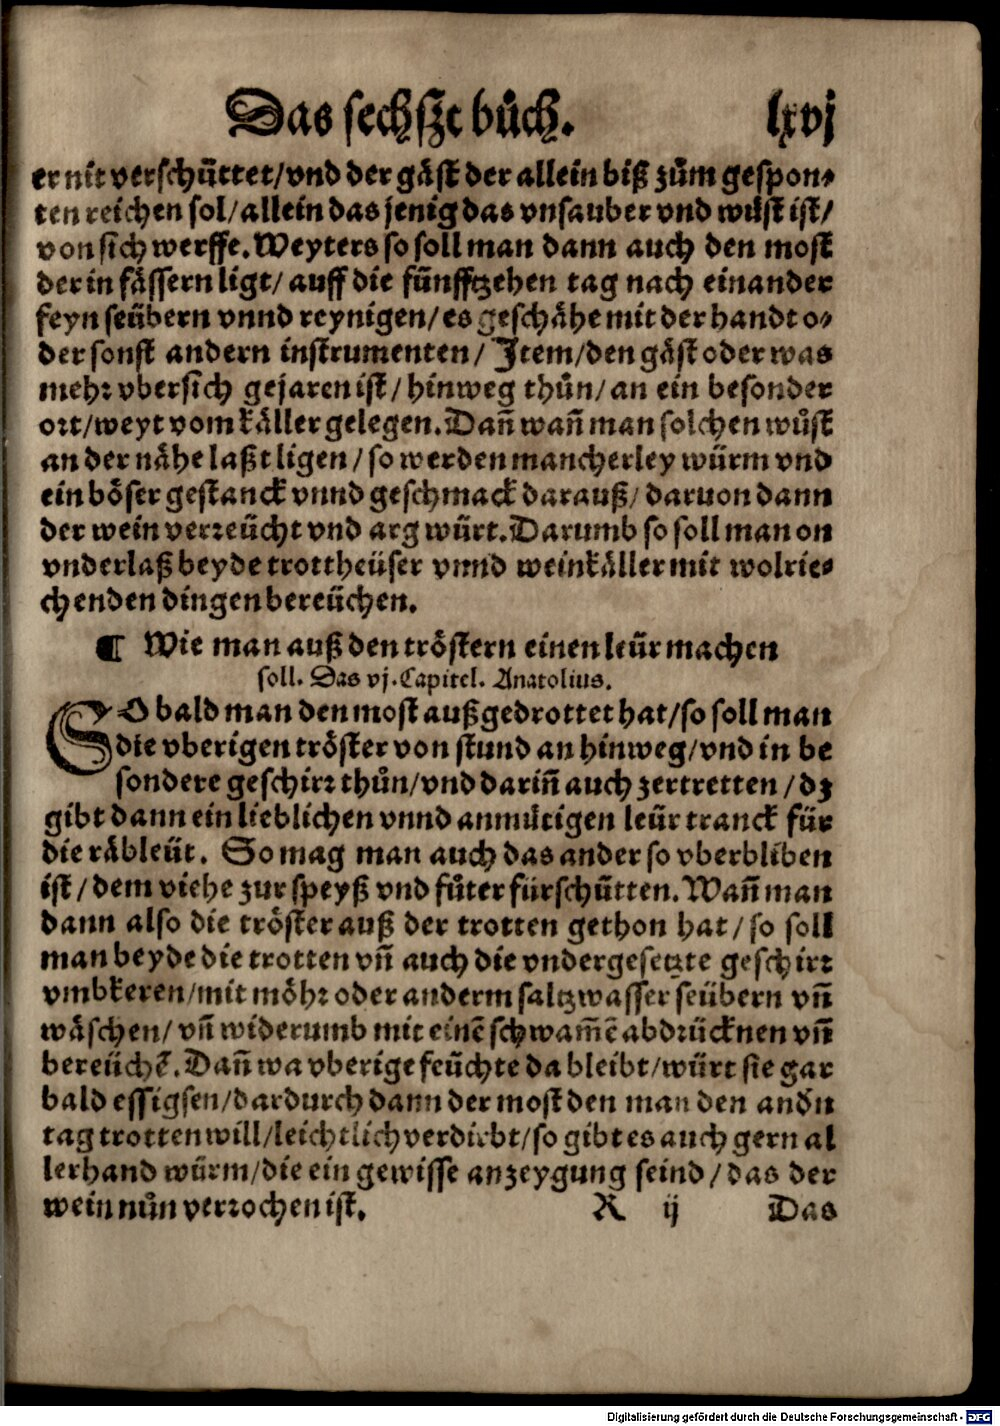 Das sechszt bůch. lxvj
er nit verschüttet/vnd der gäst der allein biß zům gespon⸗
ten reichen sol/allein das jenig das vnsauber vnd wůst ist/
von sich werffe. Weyters so soll man dann auch den most
der in fässern ligt/ auff die fünfftzehen tag nach einander
feyn seübern vnnd reynigen/es geschähe mit der handt o⸗
der sonst andern instrumenten/ Item/den gäst oder was
mehr vbersich gejaren ist/hinweg thůn/an ein besonder
ort/weyt vom käller gelegen. Dañ wañ man solchen wůst
an der nähe laßt ligen/so werden mancherley würm vnd
ein böser gestanck vnnd geschmack darauß/daruon dann
der wein verreücht vnd arg würt. Darumb so soll man on
vnderlaß beyde trottheüser vnnd weinkäller mit wolrie⸗
chenden dingen bereüchen.
¶ Wie man auß den tröstern einen leür machen
soll. Das vj. Capitel. Anatolius.
SO bald man den most außgedrottet hat/so soll man
die vberigen tröster von stund an hinweg/vnd in be
sondere geschirr thůn/vnd dariñ auch zertretten/dz
gibt dann ein lieblichen vnnd anmütigen leür tranck für
die räbleüt. So mag man auch das ander so vberbliben
ist/dem viehe zur speyß vnd fůter fürschütten. Wañ man
dann also die tröster auß der trotten gethon hat/so soll
man beyde die trotten vñ auch die vndergesetzte geschirr
vmbkeren/mit möhr oder anderm saltzwasser seübern vñ
wäschen/vñ widerumb mit einẽ schwam̃ẽ abdrücknen vñ
bereüchẽ. Dañ wa vberige feüchte da bleibt/würt sie gar
bald essigsen/dardurch dann der most den man den andñ
tag trotten will/leichtlich verdirbt/so gibt es auch gern al
lerhand würm/die ein gewisse anzeygung seind/das der
wein nůn verrochen ist. R ij Das
Digitalisierung gefördert durch die Deutsche Forschungsgemeinschaft - DFG